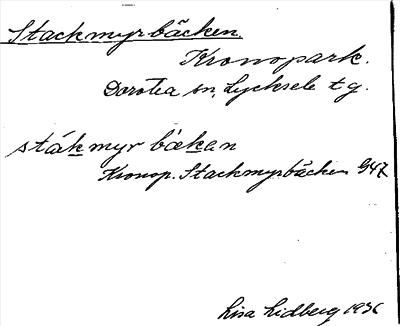 Stackmyrbäcken.
Kronopark.
Dorotea sn, Lycksele tg.
stákmyr bäkan
Kronop. Stackmyrbäcken G47
Lisa Lidberg 1936